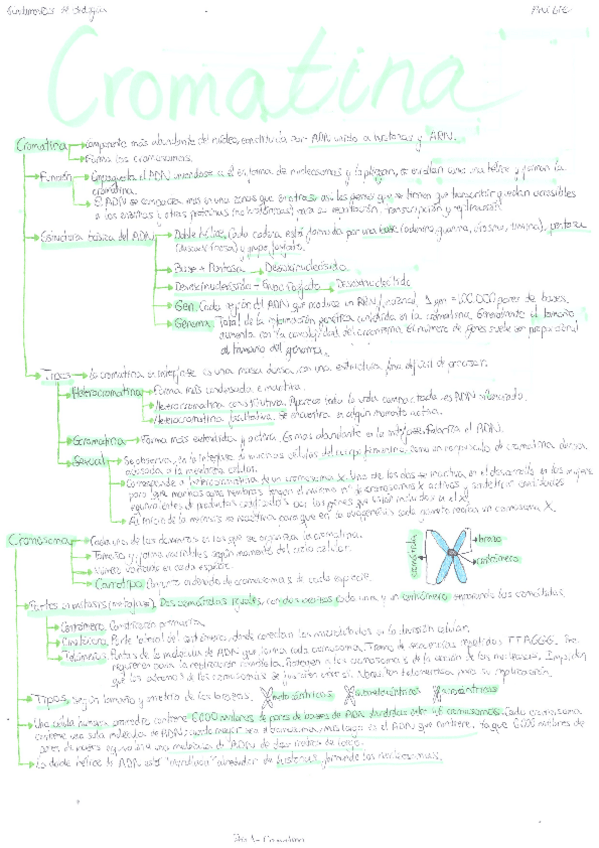 Cromatina
Cromatina → Componente más abundante del núcleo, constituida por ADN unido a histonas y ARN.
→ Forma los cromosomas.
→ Función → Empaqueta el ADN uniéndose a él en forma de nucleosomas y lo pliegan, se enrollan como una hélice y forman la
cromatina.
→ El ADN se empaqueta más en unas zonas que en otras, así los genes que se tienen que transcribir quedan accesibles
a los enzimas y otras proteínas (no histónicas) para su regulación, transcripción y replicación
→ Estructura básica del ADN → Doble hélice. Cada cadena está formada por una base (adenina, guanina, citosina, timina), pentosa
(desoxirribosa) y grupo fosfato.
→ Base + Pentosa → Desoxinucleósido
→ Desoxinucleósido + Grupo fosfato → Desoxinucleótido
→ Gen. Cada región del ADN que produce un ARN funcional. 1 gen = 100.000 pares de bases.
→ Genoma. Total de la información genética contenida en los cromosomas. Generalmente el tamaño
aumenta con la complejidad del organismo. El número de genes suele ser proporcional
al tamaño del genoma.
→ Tipos → La cromatina en interfase es una masa difusa, con una estructura fina difícil de precisar.
→ Heterocromatina → Forma más condensada e inactiva.
→ Heterocromatina constitutiva. Aparece toda la vida compactada. es ADN
→ Heterocromatina facultativa. Se encuentra en algún momento activa.
→ Eucromatina → Forma más extendida y activa. Es más abundante en la interfase. Enlaza el ADN.
→ Sexual → Se observa, en la interfase de muchas células del cuerpo femenino, como un corpúsculo de cromatina densa,
adosada a la membrana celular.
→ Corresponde a heterocromatina de un cromosoma X. Uno de los dos se inactiva en el desarrollo en las mujeres
para que machos como hembras tengan el mismo nº de cromosomas X activos y sinteticen cantidades
equivalentes de productos codificados por los genes que están incluidos en el X.
→ Al inicio de la meiosis se reactiva para que en la ovogénesis cada gameto reciba un cromosoma X.
Cromosoma → Cada uno de los elementos en los que se organiza la cromatina.
→ Tamaño y forma variables según momento del ciclo celular.
→ Número constante en cada especie.
→ Cariotipo. Conjunto ordenado de cromosomas de cada especie.
cromátida
brazo
centrómero
→ Partes en metafase. Dos cromátidas iguales, con dos brazos cada una y un centrómero uniendo las cromátidas.
→ Centrómero. Constricción primaria.
→ Cinetócoro. Parte lateral del centrómero, donde conectan los microtúbulos en la división celular.
→ Telómeros. Puntas de la molécula de ADN que forma cada cromosoma. Tramo de secuencias repetidas TTAGGG. Se
requieren para la replicación completa. Protegen a los cromosomas de la acción de las nucleasas. Impiden
que los extremos de los cromosomas se fusionen entre sí. Usan la telomerasa para su replicación.
→ Tipos, según tamaño y simetría de los brazos. metacéntricos submetacéntricos acrocéntricos
→ Una célula humana promedio contiene 6000 millones de pares de bases de ADN divididos entre 46 cromosomas. Cada cromosoma
contiene una sola molécula de ADN; cuanto mayor sea el cromosoma, más largo es el ADN que contiene, ya que 6000 millones de
pares de bases equivalen a una molécula de ADN de dos metros de largo.
→ La doble hélice de ADN está "enrollada" alrededor de histonas, formando los nucleosomas.